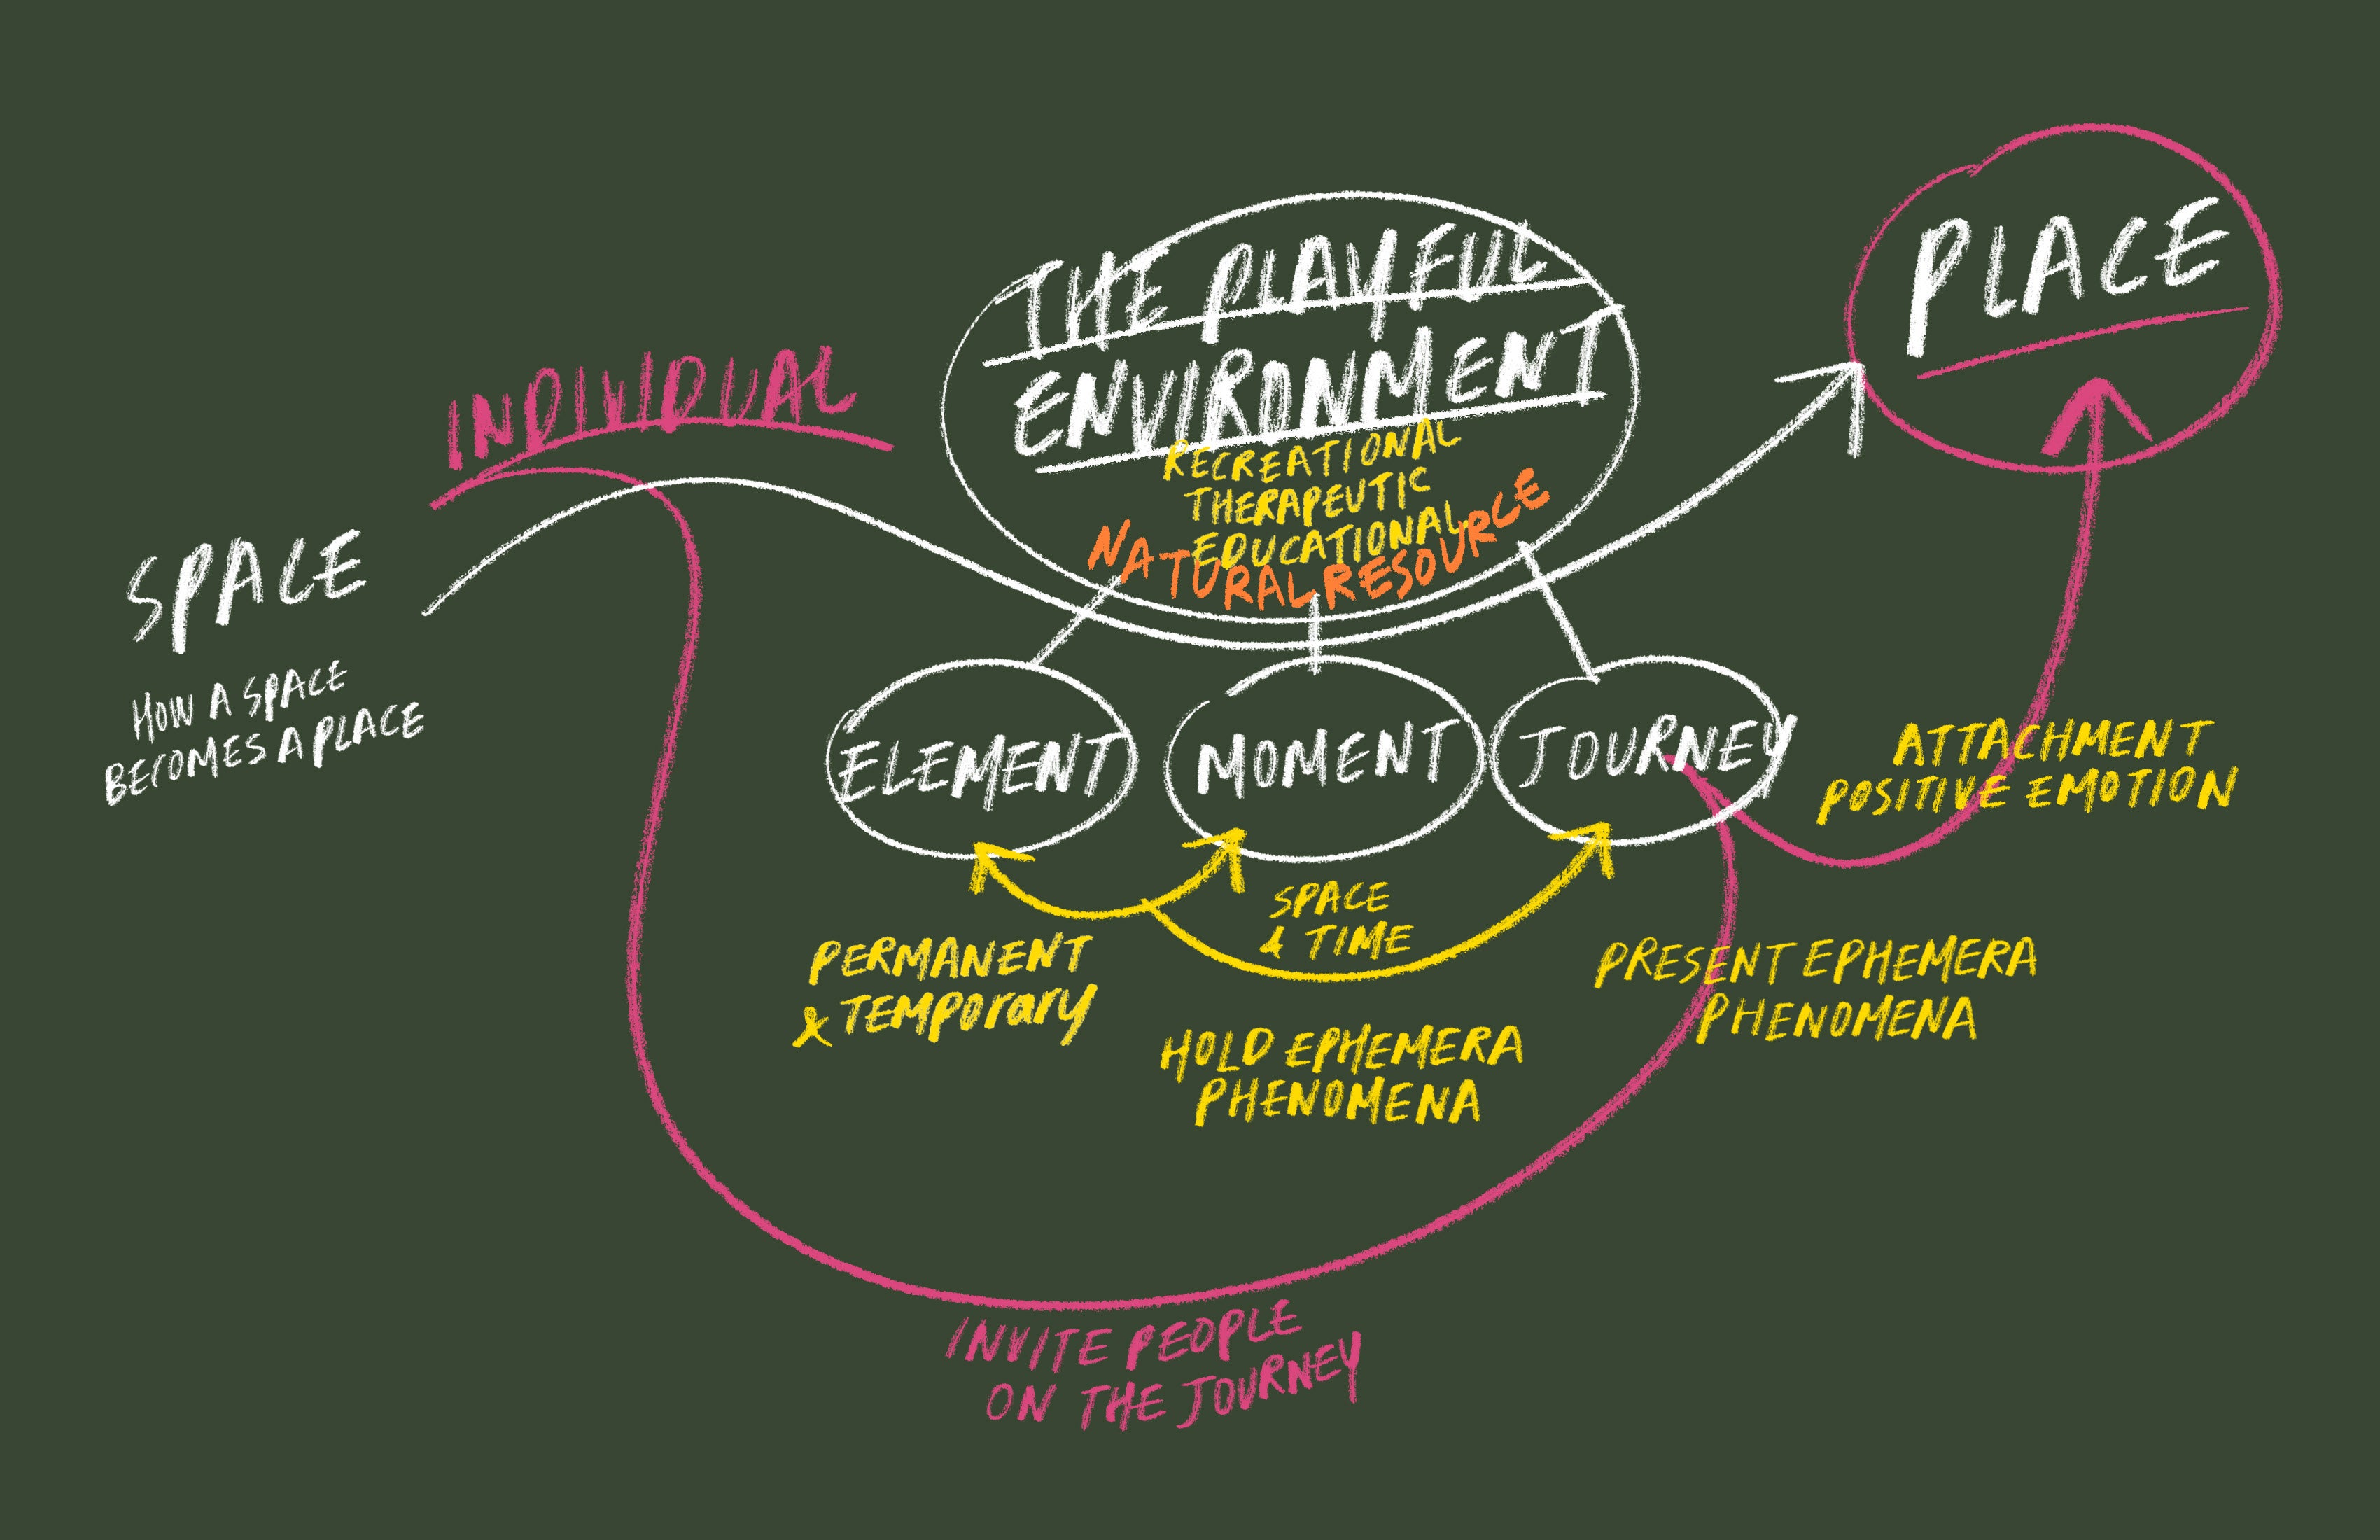 INDIVIDUAL
SPACE
HOW A SPACE
BECOMES A PLACE
THE PLAYFUL
ENVIRONMENT
RECREATIONAL
THERAPEUTIC
EDUCATIONAL
NATURAL RESOURCE
PLACE
ELEMENT
MOMENT
JOURNEY
ATTACHMENT
POSITIVE EMOTION
SPACE
& TIME
PERMANENT
& TEMPORARY
HOLD EPHEMERA
PHENOMENA
PRESENT EPHEMERA
PHENOMENA
INVITE PEOPLE
ON THE JOURNEY